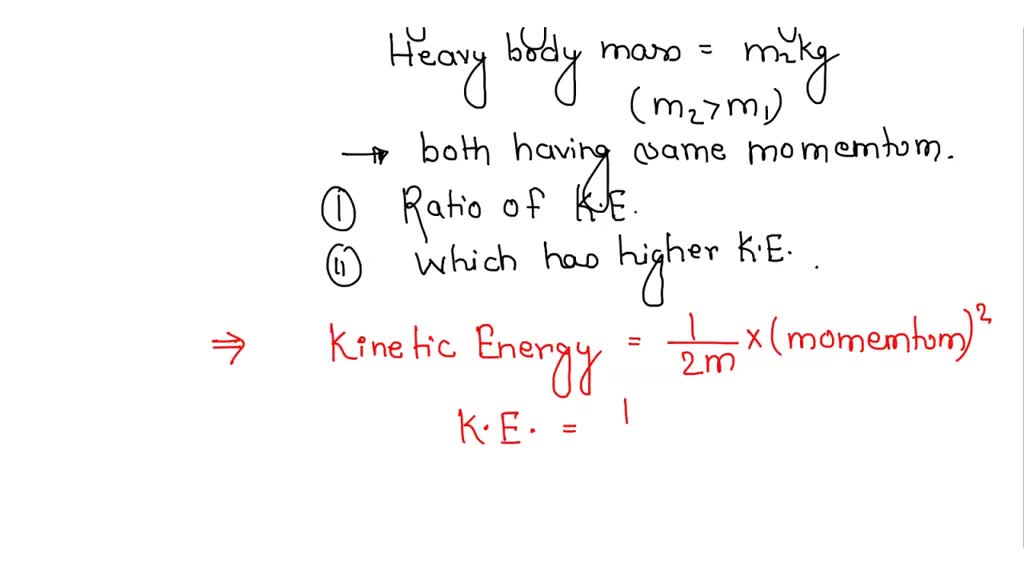 Heavy body mass = m₂kg
(m₂>m₁)
→ both having same momemtum.
(i) Ratio of K.E.
(ii) which has higher K.E.
⇒ Kinetic Energy = 1/2m × (momemtum)²
K.E. = 1